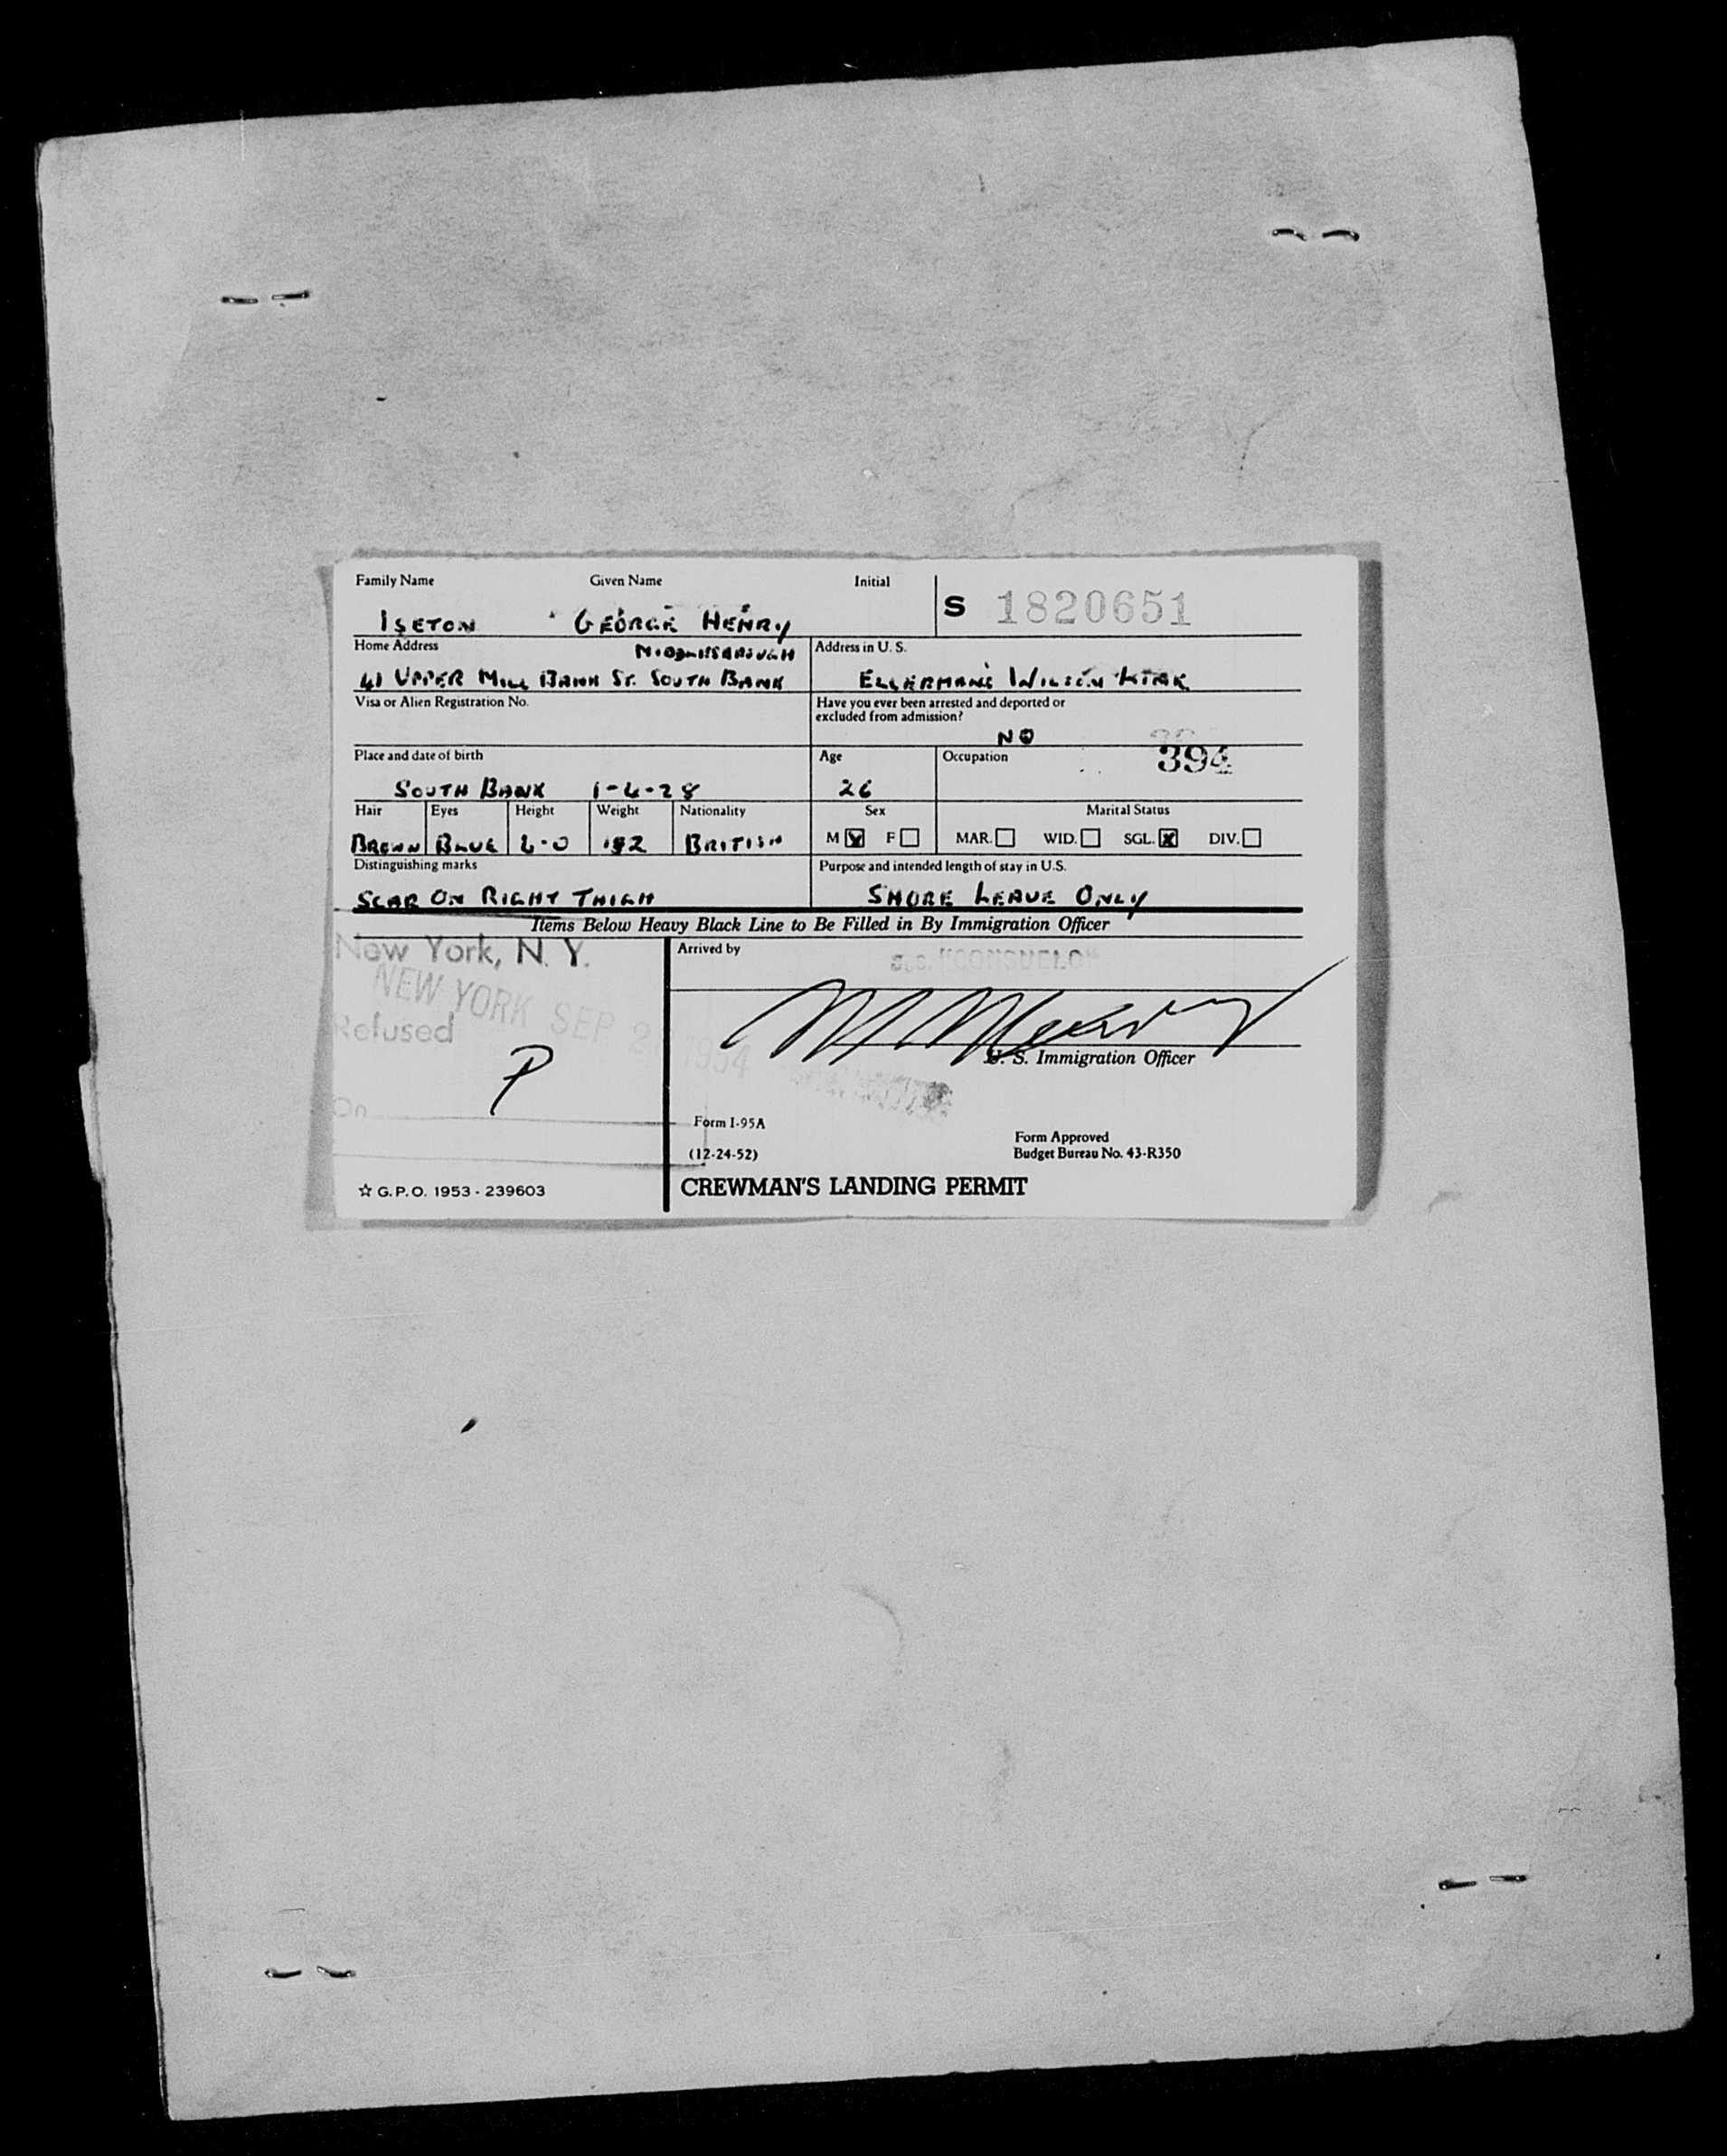 Family Name Given Name Initial
S 1820651
ISETON GEORGE HENRY
Home Address MIDDLESBROUGH Address in U. S.
41 UPPER MILL BANK ST. SOUTH BANK ELLERMAN'S WILSON
Visa or Alien Registration No. Have you ever been arrested and deported or
excluded from admission?
NO
Place and date of birth Age Occupation 394
SOUTH BANK 1-4-28 26
Hair Eyes Height Weight Nationality Sex Marital Status
M F MAR. WID. SGL. X DIV.
BROWN BLUE 6-0 182 BRITISH
Distinguishing marks Purpose and intended length of stay in U.S.
SCAR ON RIGHT THIGH SHORE LEAVE ONLY
Items Below Heavy Black Line to Be Filled in By Immigration Officer
New York, N. Y. Arrived by S.S. "CONSUELO"
NEW YORK SEP 1954
Refused
P
U. S. Immigration Officer
On
Form I-95A
(12-24-52)
Form Approved
Budget Bureau No. 43-R350
☆ G.P.O. 1953 - 239603
CREWMAN'S LANDING PERMIT